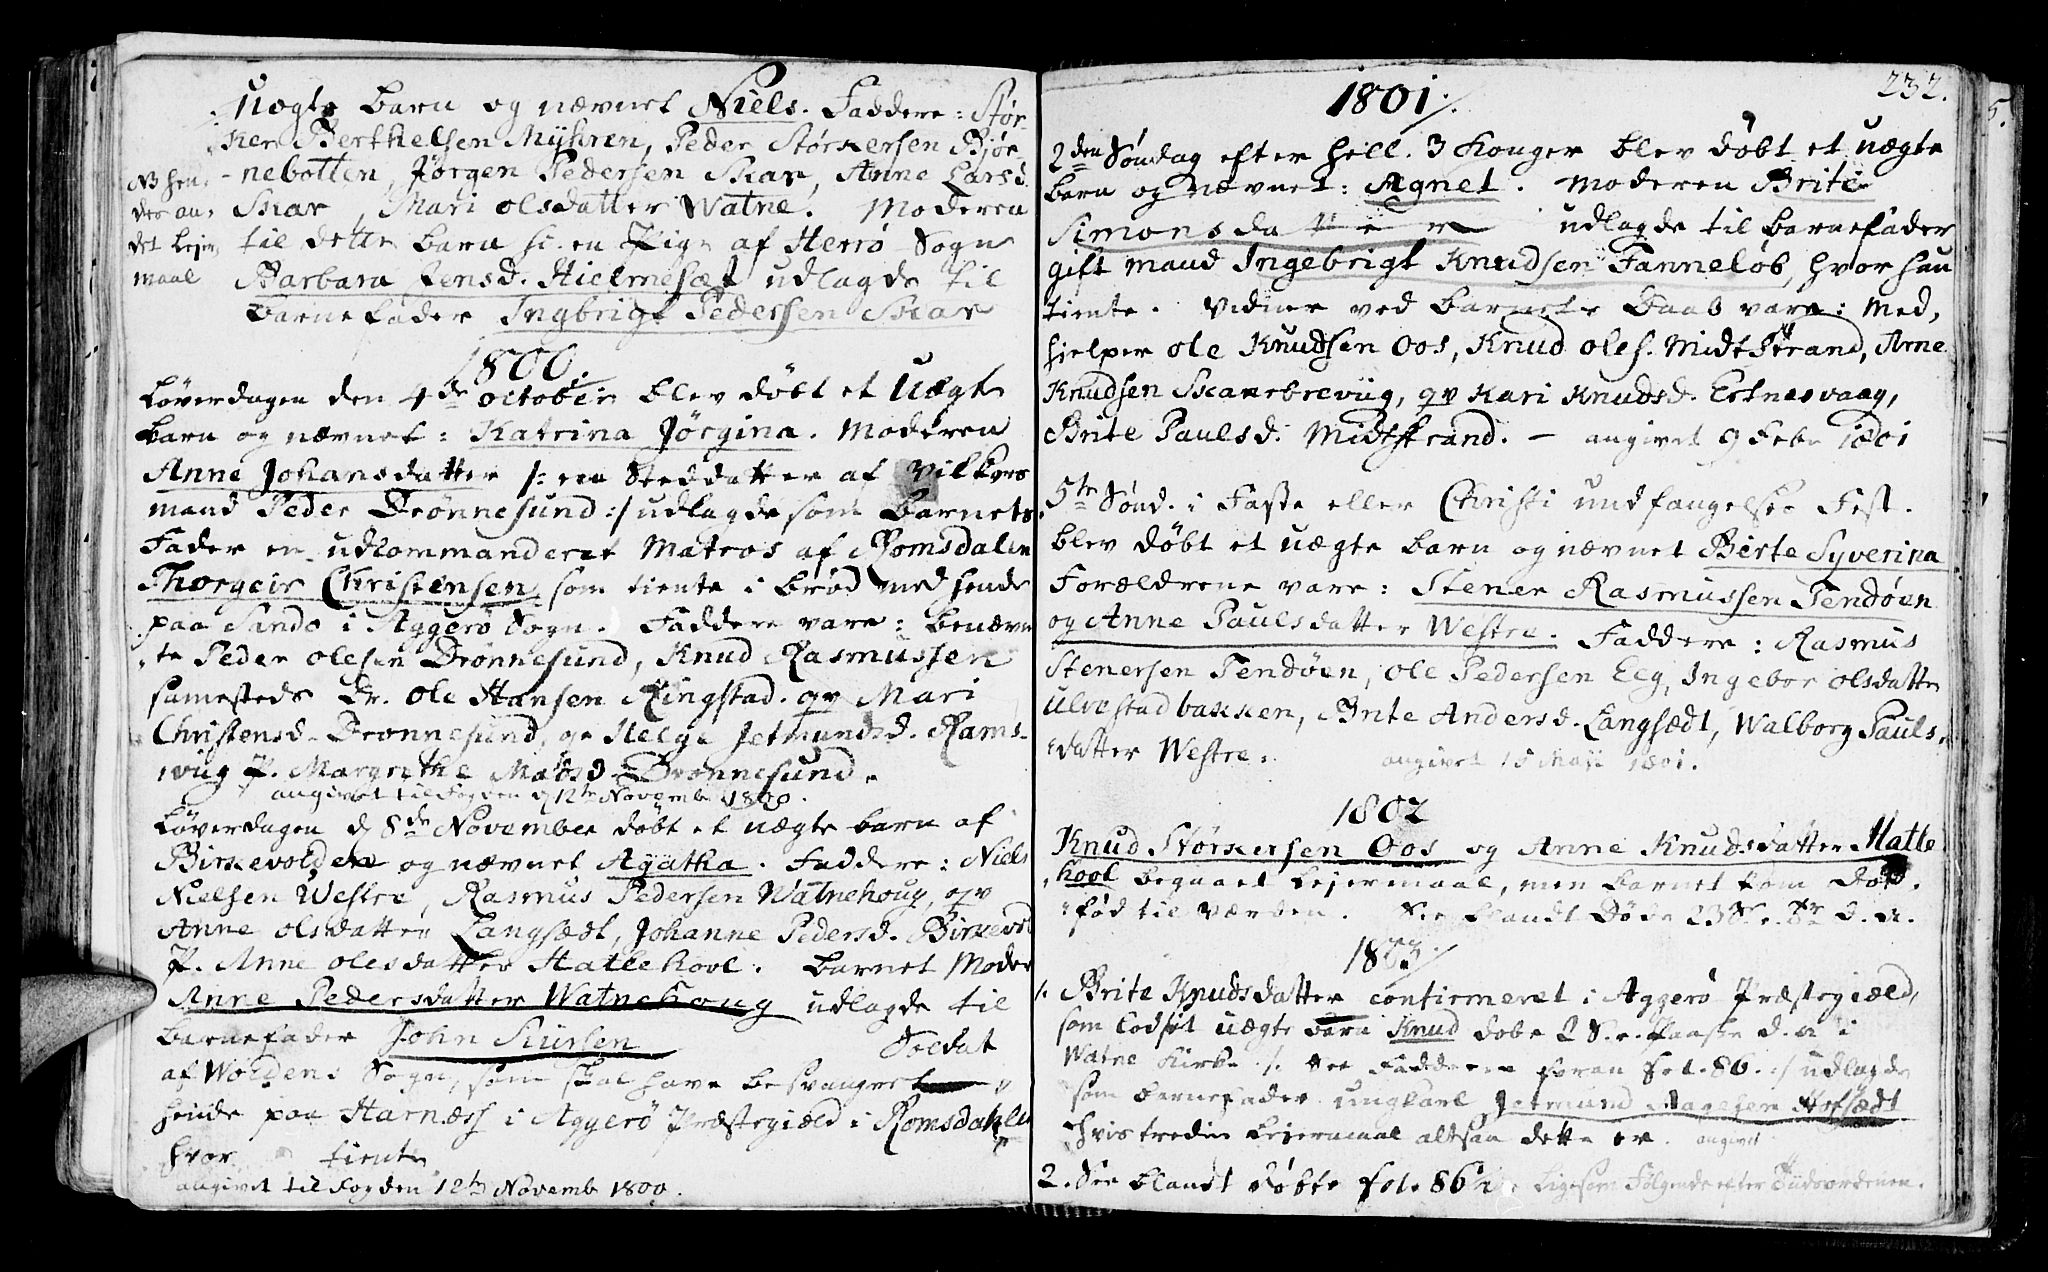 uægte barn og nævnet Niels. Faddere: Stør-
ker Berthelsen Myhren, Peder Størkersen Bjør-
nebotten, Jørgen Pedersen Skar, Anne Larsd.
Skar, Mari olsdatter Watne. Moderen
til dette barn er en Pige af Herrø Sogn
Barbara Jensd. Hielmesæt udlagde til
barnefader Ingbrigt Pedersen Skar
NB hen-
des an-
det lejer
maal
1800.
Løverdagen den 4de october blev døbt et uægte
barn og nævnet: Katrina Jørgina. Moderen
Anne Johansdatter /: en Steddatter af Vilkors
mand Peder Drønnesund :/ udlagde som barnets
Fader en udkommanderet Matros af Romsdalen
Thorgeir Christensen, som tiente i brød med hende
paa Sandø i Aggerø Sogn. Faddere vare: benævn
te Peder olesen Drønnesund, Knud Rasmussen
samesteds Dr. Ole Hansen Ringstad. qv Mari
Christensd. Drønnesund, og Helge Jetmundsd. Rams-
viig P. Margrethe Madsd. Drønnesund.
angivet til Fogden d 12te Novemb 1800.
Løverdagen d 8de November døbt et uægte barn af
Birkevolden og nævnet Agatha. Faddere: Niels
Nielsen Westre, Rasmus Pedersen Watnehoug, qv
Anne olsdatter Langsædt, Johanne Pedersd. Birkevol
P. Anne olesdatter Hatlehool. barnets Moder
Anne Pedersdatter Watnehoug udlagde til
barnefader John Siursen Soldat
af Woldens Sogn, som skal have besvangret
hende paa Harnæss i Aggerø Præstegield i Romsdahlen
hvor tiente
angivet til Fogden 12te Novemb 1800.
232.
1801.
2den Søndag efter Hell. 3 Konger blev døbt et uægte
barn og nævnet: Agnet. Moderen Brite
Simonsdatter udlagde til barnefader
gift mand Ingebrigt Knudsen Fanneløb, hvor hun
tiente. Vidner ved barnets Daab vare: Med-
hielper ole Knudsen Oos, Knud oles. Midtstrand, Arne
Knudsen Skarebreviig, qv Kari Knudsd. Eltnesvaag,
Brite Paulsd. Midtstrand. - angivet 9 Febr 1801
5te Sønd. i Faste eller Christi undfangelses Fest.
blev døbt et uægte barn og nævnet Birte Syverina
Forældrene vare: Stener Rasmussen Tendøen
og Anne Paulsdatter Westre. Faddere: Rasmus
Stenersen Tendøen, ole Pedersen Eeg, Ingebor olsdatter
Ulvestadbakken, Brite Andersd. Langsædt, Walborg Pauls
datter Westre. angivet 15 Maji 1801.
1802
Knud Størkersen Oos og Anne Knudsdatter Hatle
hool begaaet Lejermaal, men barnet kom død-
fød til Verden. See blandt Døde 23 S. e. Tr. d. a.
1803.
1. Brite Knudsdatter confirmeret i Aggerø Præstegield,
som lod sit uægte barn Knud døbe 2 S. e. Paaske d. a i
Watne Kirke /: see Faddrene foran fol. 86. :/ udlagde
som barnefader ungkarl Jetmund Aagesen Hofsædt
hvis tredie Lejermaal altsaa dette er. angivet
2. See blandt døbte fol. 86 ligesom Følgende efter Tiidsordenen.